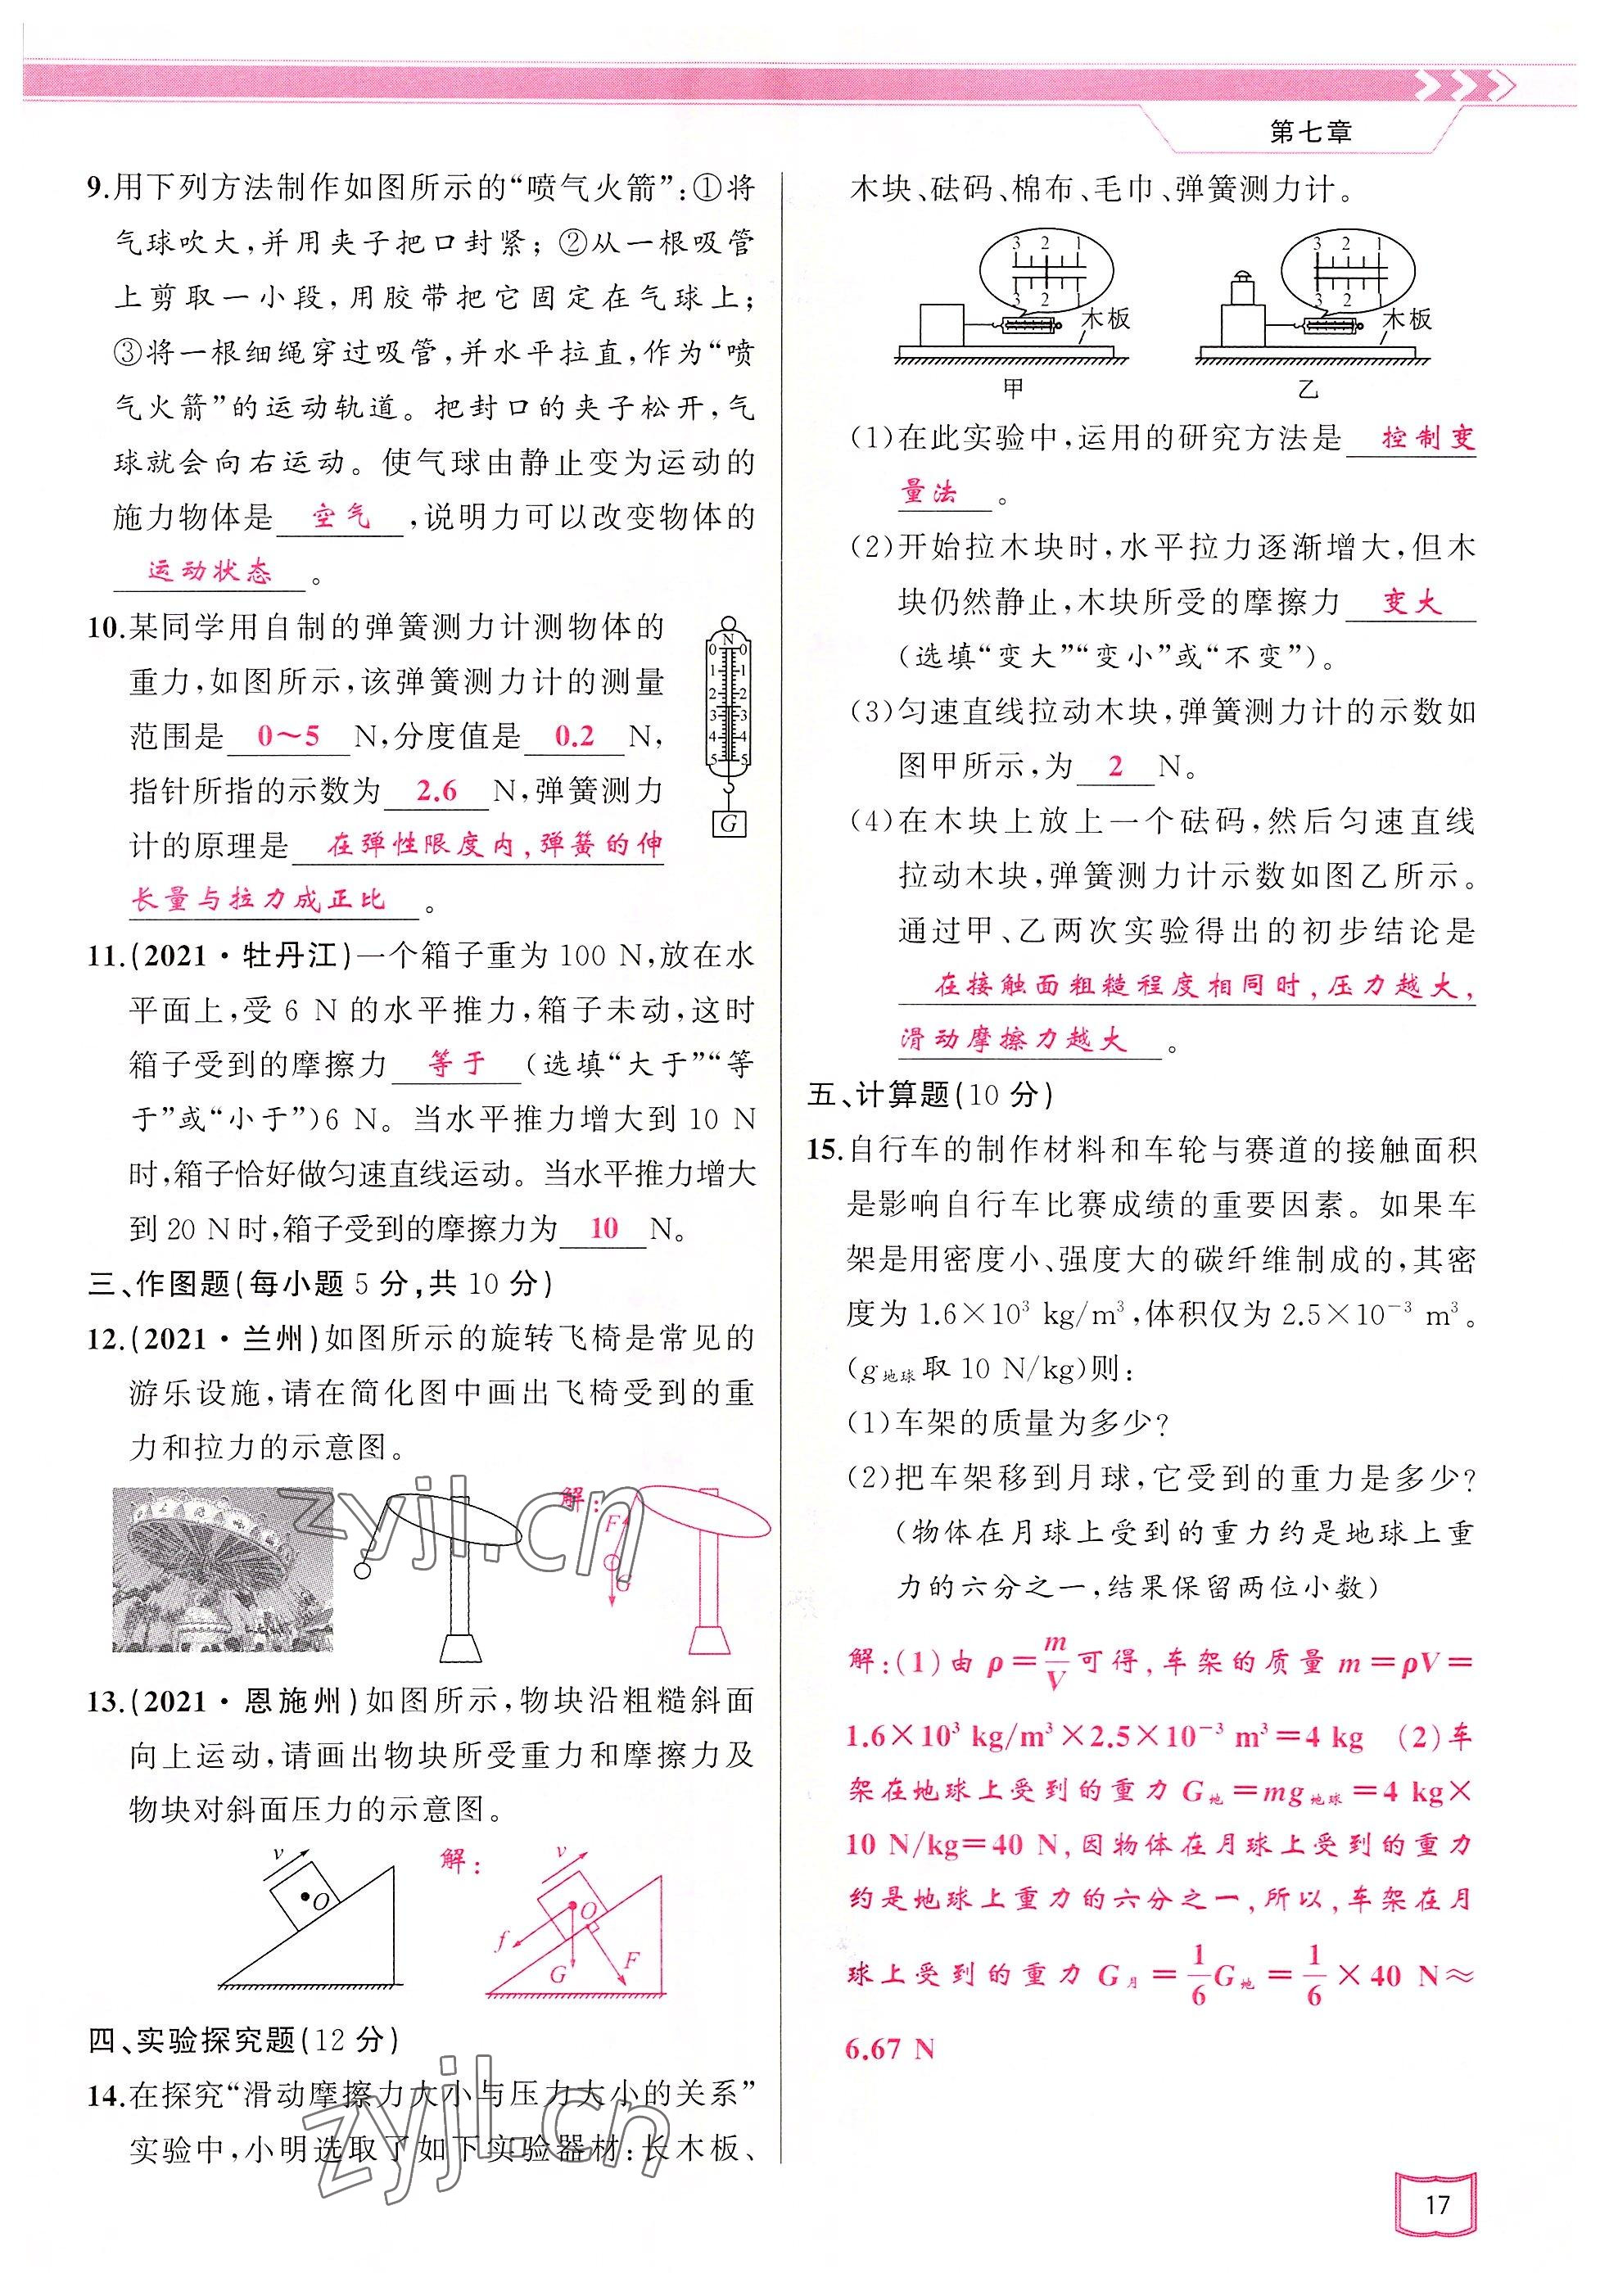 第七章
9.用下列方法制作如图所示的“喷气火箭”:①将
气球吹大,并用夹子把口封紧;②从一根吸管
上剪取一小段,用胶带把它固定在气球上;
③将一根细绳穿过吸管,并水平拉直,作为“喷
气火箭”的运动轨道。把封口的夹子松开,气
球就会向右运动。使气球由静止变为运动的
施力物体是 空气 ,说明力可以改变物体的
运动状态 。
10.某同学用自制的弹簧测力计测物体的
重力,如图所示,该弹簧测力计的测量
范围是 0～5 N,分度值是 0.2 N,
指针所指的示数为 2.6 N,弹簧测力
计的原理是 在弹性限度内,弹簧的伸
长量与拉力成正比 。
N
0 0
1 1
2 2
3 3
4 4
5 5
G
11.(2021·牡丹江)一个箱子重为 100 N,放在水
平面上,受 6 N 的水平推力,箱子未动,这时
箱子受到的摩擦力 等于 (选填“大于”“等
于”或“小于”)6 N。当水平推力增大到 10 N
时,箱子恰好做匀速直线运动。当水平推力增大
到 20 N时,箱子受到的摩擦力为 10 N。
三、作图题(每小题 5 分,共 10 分)
12.(2021·兰州)如图所示的旋转飞椅是常见的
游乐设施,请在简化图中画出飞椅受到的重
力和拉力的示意图。
解:
F
G
zyjl.cn
13.(2021·恩施州)如图所示,物块沿粗糙斜面
向上运动,请画出物块所受重力和摩擦力及
物块对斜面压力的示意图。
v
O
解:
v
O
f
G
F
四、实验探究题(12 分)
14.在探究“滑动摩擦力大小与压力大小的关系”
实验中,小明选取了如下实验器材:长木板、
zyjl.cn
木块、砝码、棉布、毛巾、弹簧测力计。
3 2 1
3 2 1
木板
甲
3 2 1
3 2 1
木板
乙
(1)在此实验中,运用的研究方法是 控制变
量法 。
(2)开始拉木块时,水平拉力逐渐增大,但木
块仍然静止,木块所受的摩擦力 变大
(选填“变大”“变小”或“不变”)。
(3)匀速直线拉动木块,弹簧测力计的示数如
图甲所示,为 2 N。
(4)在木块上放上一个砝码,然后匀速直线
拉动木块,弹簧测力计示数如图乙所示。
通过甲、乙两次实验得出的初步结论是
在接触面粗糙程度相同时,压力越大,
滑动摩擦力越大 。
五、计算题(10 分)
15.自行车的制作材料和车轮与赛道的接触面积
是影响自行车比赛成绩的重要因素。如果车
架是用密度小、强度大的碳纤维制成的,其密
度为 1.6×10³ kg/m³,体积仅为 2.5×10⁻³ m³。
(g地球取 10 N/kg)则:
(1)车架的质量为多少?
(2)把车架移到月球,它受到的重力是多少?
(物体在月球上受到的重力约是地球上重
力的六分之一,结果保留两位小数)
解:(1)由 ρ=m/V可得,车架的质量 m=ρV=
1.6×10³ kg/m³×2.5×10⁻³ m³=4 kg (2)车
架在地球上受到的重力 G地=mg地球=4 kg×
10 N/kg=40 N,因物体在月球上受到的重力
约是地球上重力的六分之一,所以,车架在月
球上受到的重力 G月=1/6G地=1/6×40 N≈
6.67 N
17